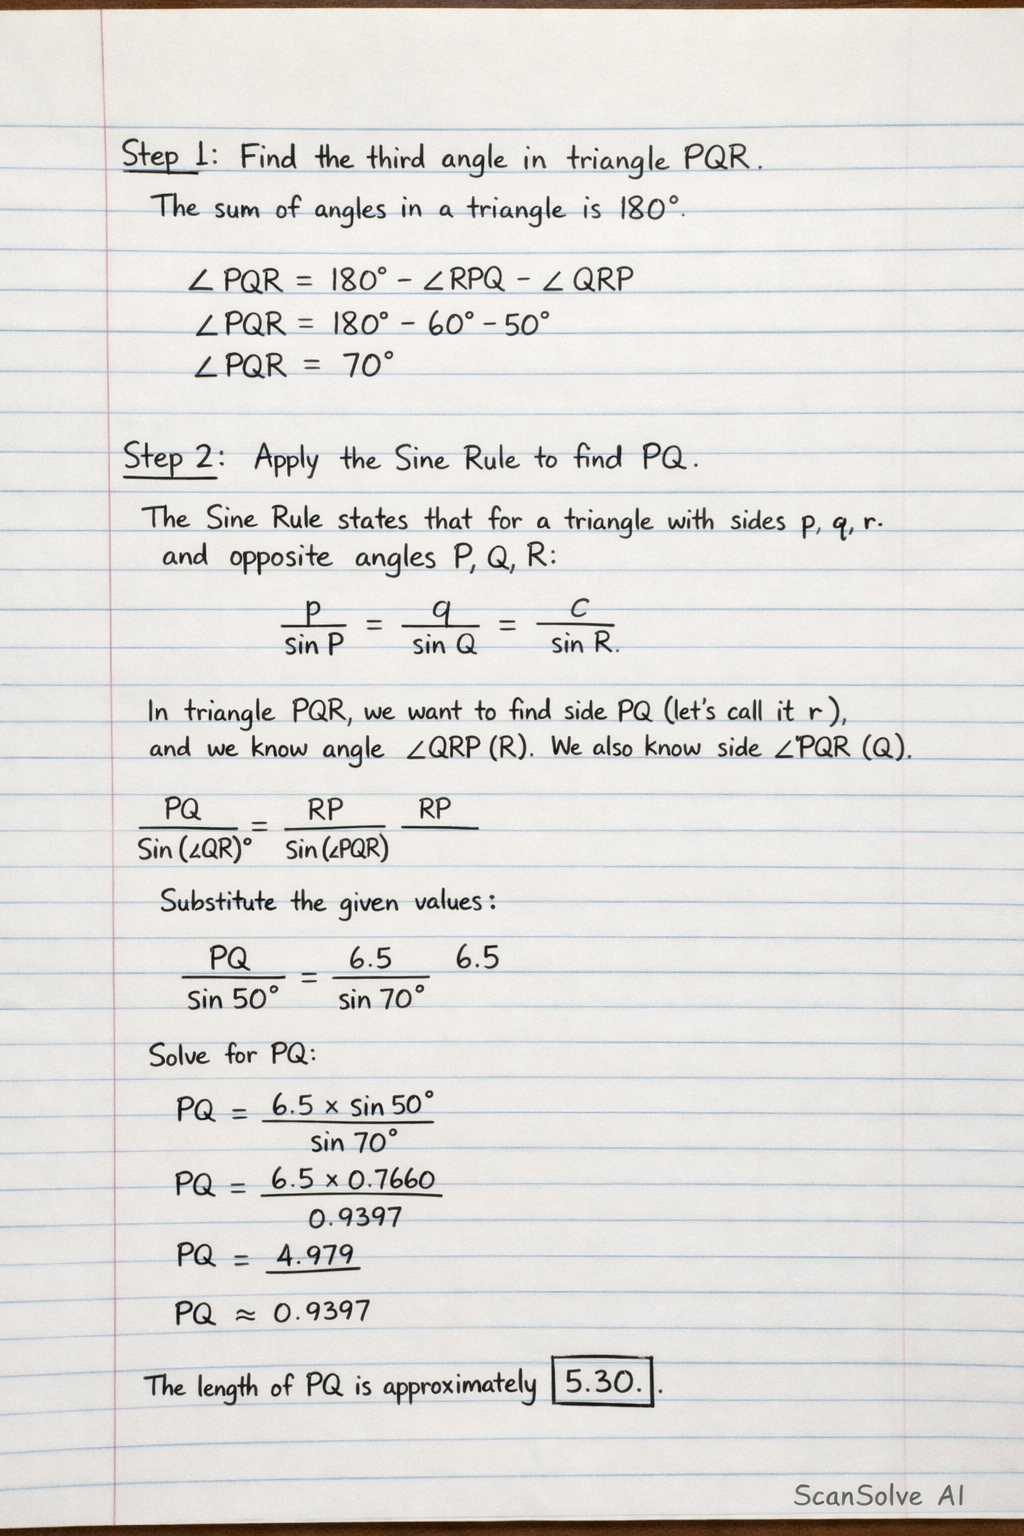 Step 1: Find the third angle in triangle PQR.
The sum of angles in a triangle is 180°.
∠PQR = 180° - ∠RPQ - ∠QRP
∠PQR = 180° - 60° - 50°
∠PQR = 70°
Step 2: Apply the Sine Rule to find PQ.
The Sine Rule states that for a triangle with sides p, q, r.
and opposite angles P, Q, R:
p/sin P = q/sin Q = C/sin R.
In triangle PQR, we want to find side PQ (let's call it r),
and we know angle ∠QRP (R). We also know side ∠PQR (Q).
PQ/Sin (∠QR)° = RP/Sin (∠PQR) RP
Substitute the given values:
PQ/sin 50° = 6.5/sin 70° 6.5
Solve for PQ:
PQ = 6.5 × sin 50°/sin 70°
PQ = 6.5 × 0.7660/0.9397
PQ = 4.979
PQ ≈ 0.9397
The length of PQ is approximately 5.30..
ScanSolve AI